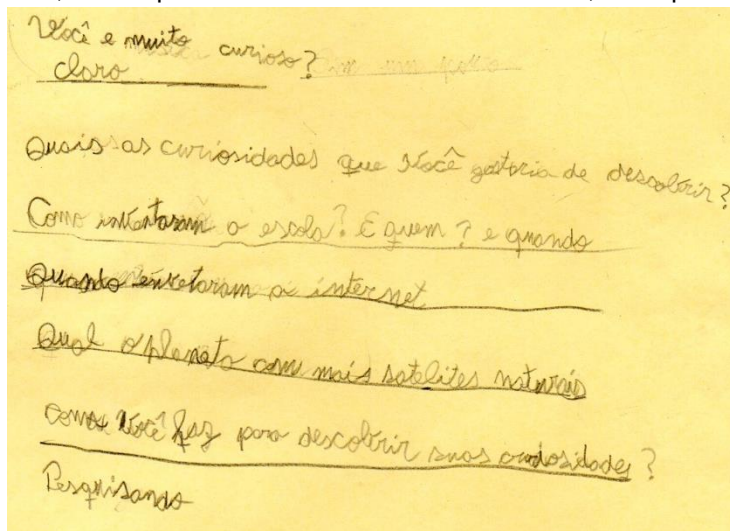 Você e muito curioso?
claro
Quais as curiosidades que você gostaria de descobrir?
Como inventaram a escola? E quem? e quando
Quando envetaram a internet
Qual o planeta com mais satelites naturais
como você faz para descobrir suas curiosidades?
Pesquisando